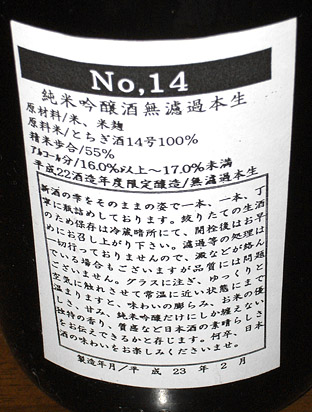 No,14
純米吟醸酒無濾過本生
原材料/米、米麹
原料米/とちぎ酒14号100%
精米歩合/55%
アルコール分/16.0%以上〜17.0%未満
平成22酒造年度限定醸造/無濾過本生
新酒の雫をそのままの姿で一本、一本、丁
寧に瓶詰めしております。搾りたての生酒
のため保存は冷蔵暗所にて、開栓後はお早
めにお召し上がり下さい。濾過等の処理は
一切行っておりませんので、滓などが絡ん
でいる場合もございますが品質には問題
ございません。グラスに注ぎ、ゆっくりと
空気に触れさせて常温に近い状態にまで
温まりますと、味わいの膨らみ、お米の優
しさ、甘み、純米吟醸酒だけにしか纏えない
独特の香り、質感など日本酒の素晴らしさ
をお伝えできるかと存じます。何卒、日本
酒の味わいをお楽しみくださいませ。
製造年月/平成 23 年 2 月